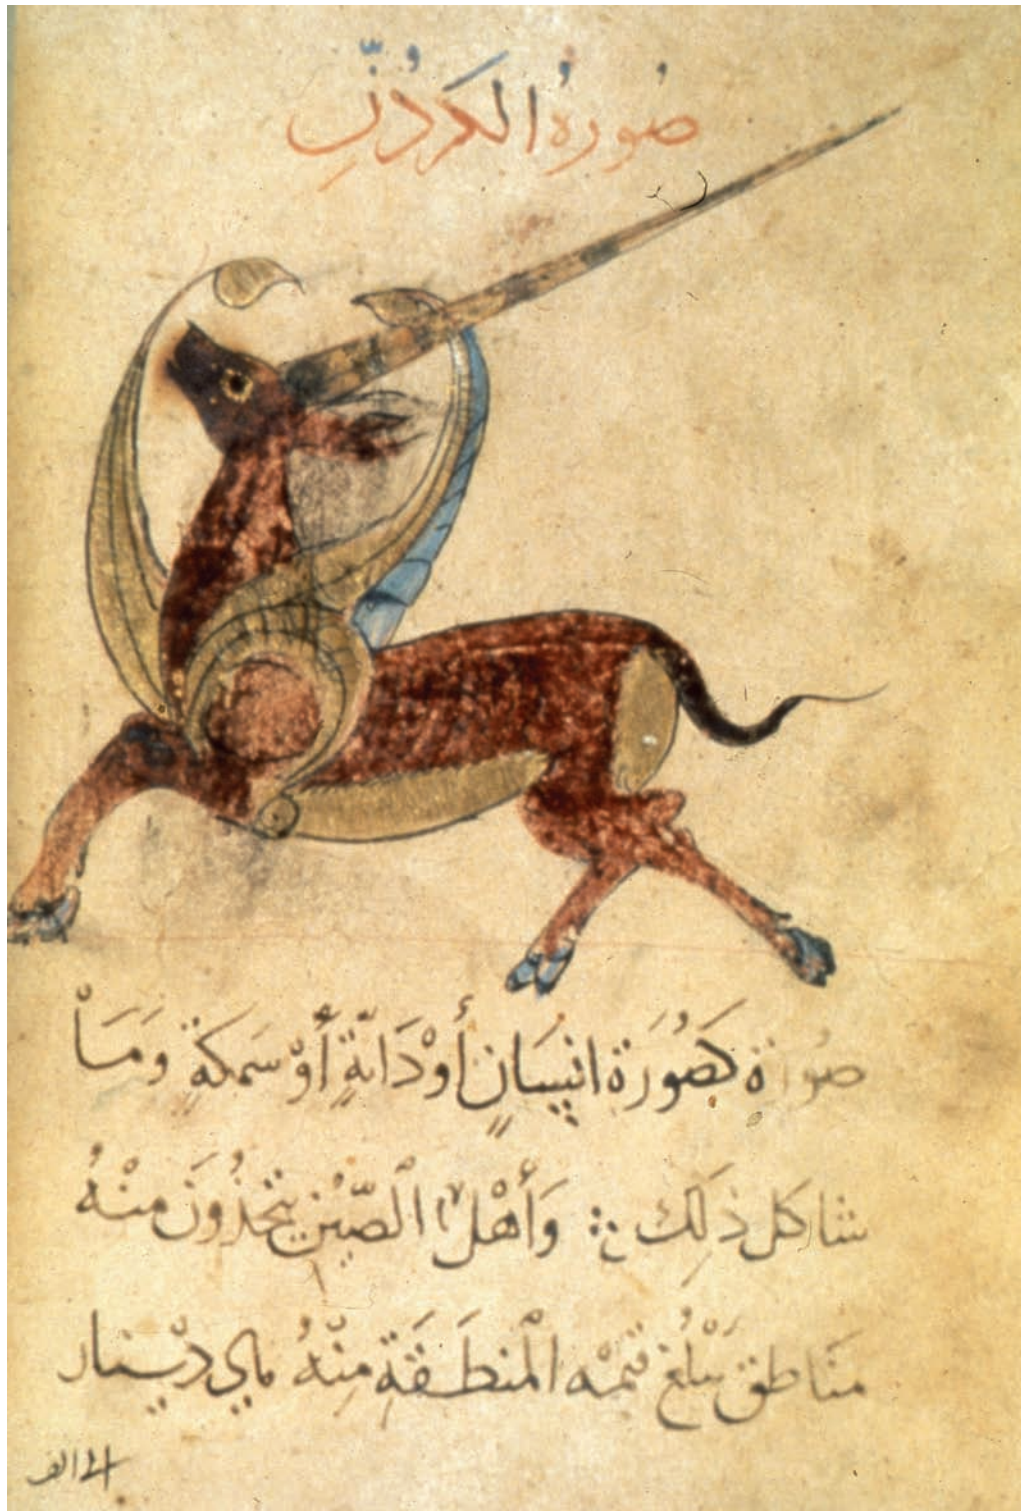 صُورةُ الكَرْكَدُنِّ
صُورَة كَصُورَة انْسَانٍ أَوْ دَابَّةٍ أَوْ سَمَكَةٍ وَمَا
شاكل ذَلِكَ وَأَهْلُ الصِّيْنِ يتخذُونَ منْهُ
مَنَاطق يَبْلُغ قيمَة الْمنطَقَةِ مِنْهُ ديْنار
الى الف